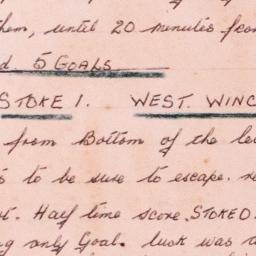 them, until 20 minutes from
d. 5 GOALS
STOKE 1. WEST. WINC
from Bottom of the le
s to be sure to escape. re
t. Half time score. STOKE 0.
ng only Goal. luck was a